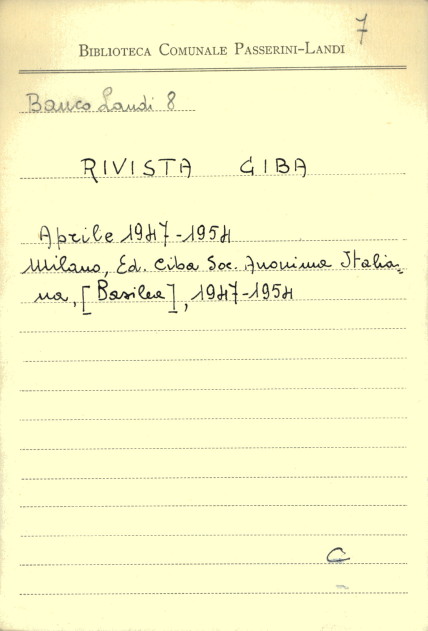 7
BIBLIOTECA COMUNALE PASSERINI-LANDI
Banco Landi 8
RIVISTA CIBA
Aprile 1947-1954
Milano, Ed. Ciba Soc. Anonima Italia-
na, [Basilea], 1947-1954
C